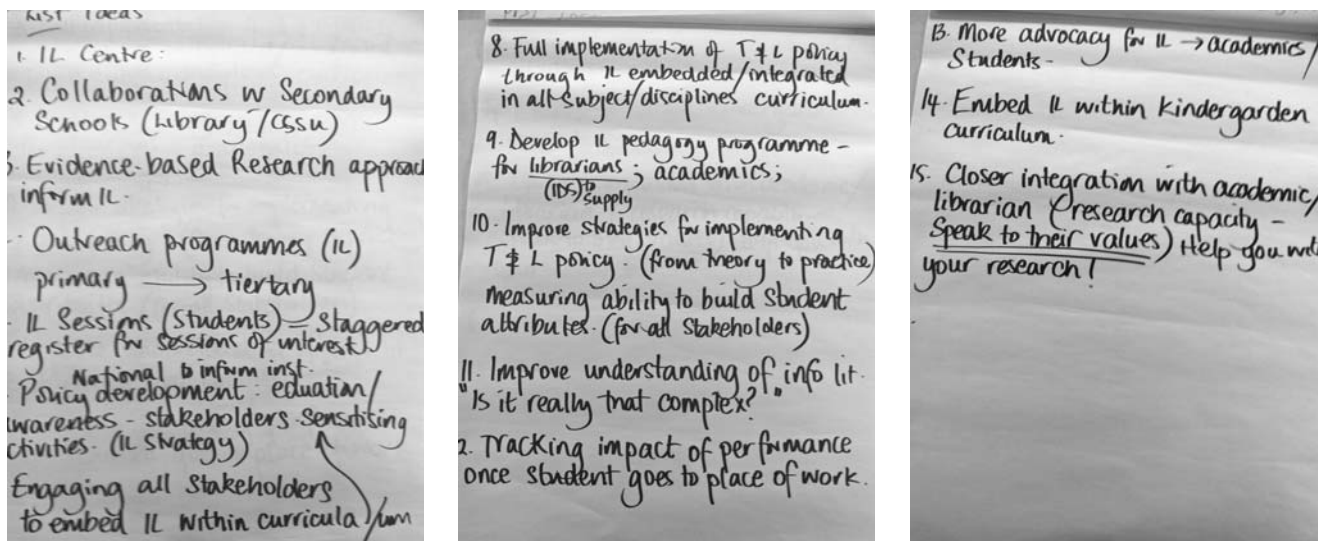 LIST Ideas
1. IL Centre:
2. Collaborations w Secondary
Schools (Library/CSSU)
3. Evidence-based Research approac
inform IL.
Outreach programmes (IL)
primary → tiertary
IL Sessions (Students) – Staggered
register for sessions of interest
National to inform inst.
Policy development: eduation/
wareness – stakeholders - Sensitising
ctivities. (IL Strategy)
Engaging all Stakeholders
to embed IL within curricula/um
8. Full implementation of T & L policy
through IL embedded/integrated
in all subject/disciplines curriculum.
9. Develop IL pedagogy programme –
for librarians; academics;
(IDS) to supply
10. Improve strategies for implementing
T & L policy. (from theory to practice)
measuring ability to build student
attributes. (for all Stakeholders)
11. Improve understanding of info lit.
"Is it really that complex?"
2. Tracking impact of performance
once student goes to place of work.
13. More advocacy for IL → academics/
Students -
14. Embed IL within kindergarden
curriculum.
15. Closer integration with academic/
librarian (research capacity –
Speak to their values) Help you wit
your research!